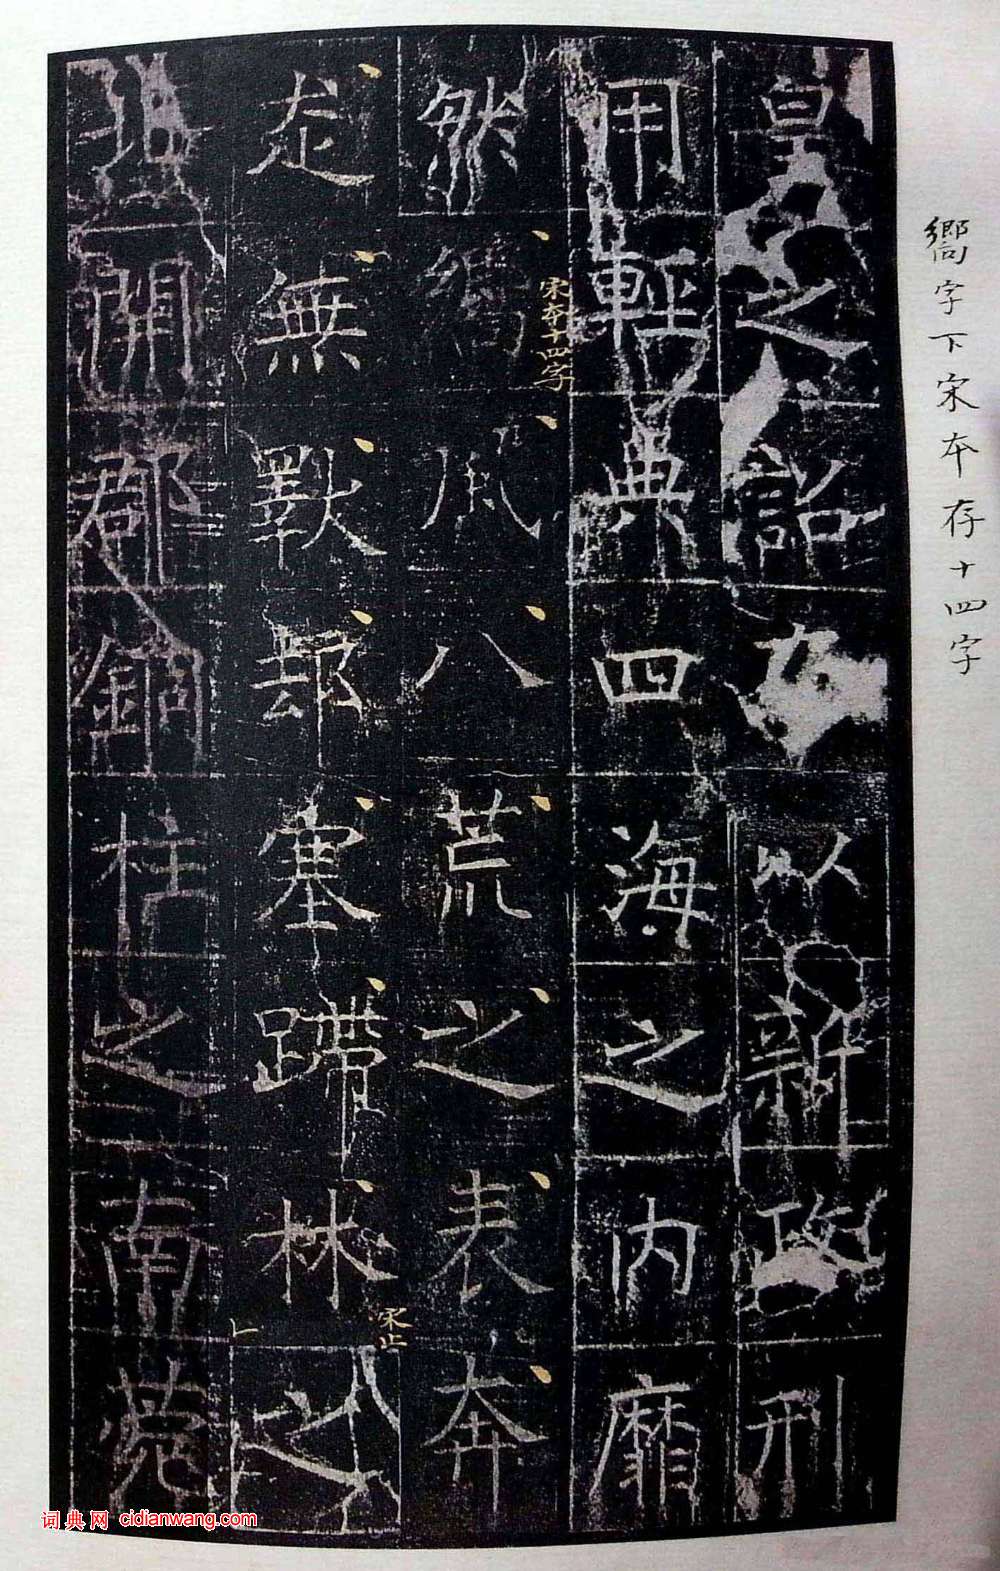 嚮字下宋本存十四字
皇之詔以新政刑
用輕典四海之內靡
宋本十四字
然嚮風八荒之表奔
走無斁郄塞蹛林之
宋止
北開郡銅柱之南
词典网 cidianwang.com